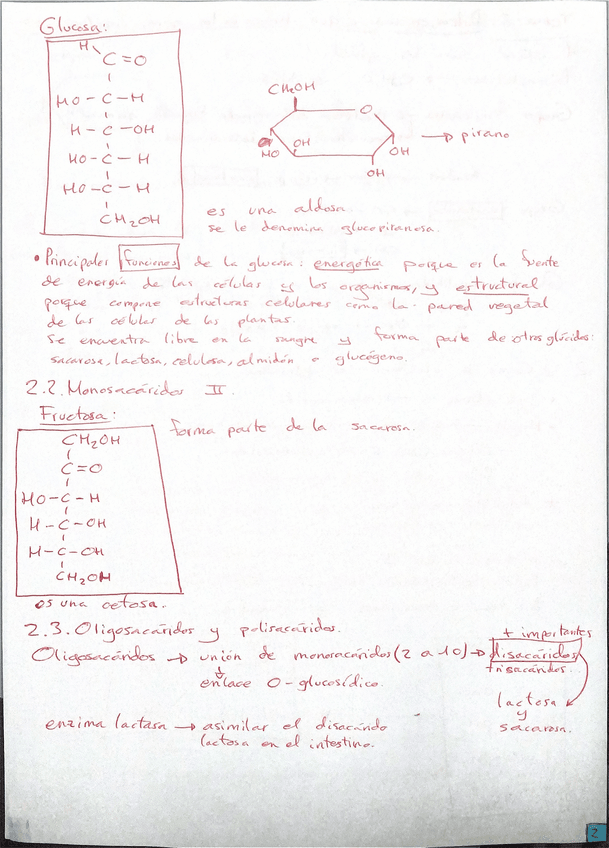 Glucosa:
H
C=O
HO-C-H
H-C-OH
HO-C-H
HO-C-H
CH2OH
CH2OH
O
OH
HO
OH
OH
→ pirano
es una aldosa.
se le denomina glucopiranosa.
• Principales funciones de la glucosa: energética porque es la fuente
de energía de las células y los organismos, y estructural
porque compone estructuras celulares como la pared vegetal
de las células de las plantas.
Se encuentra libre en la sangre y forma parte de otros glúcidos:
sacarosa, lactosa, celulosa, almidón o glucógeno.
2.2. Monosacáridos II.
Fructosa:
forma parte de la sacarosa.
CH2OH
C=O
HO-C-H
H-C-OH
H-C-OH
CH2OH
es una cetosa.
2.3. Oligosacáridos y polisacáridos.
+ importantes
Oligosacáridos → unión de monosacáridos (2 a 10) → disacáridos
trisacáridos...
enlace O-glucosídico.
lactosa
y
sacarosa.
enzima lactasa → asimilar el disacárido
lactosa en el intestino.
2